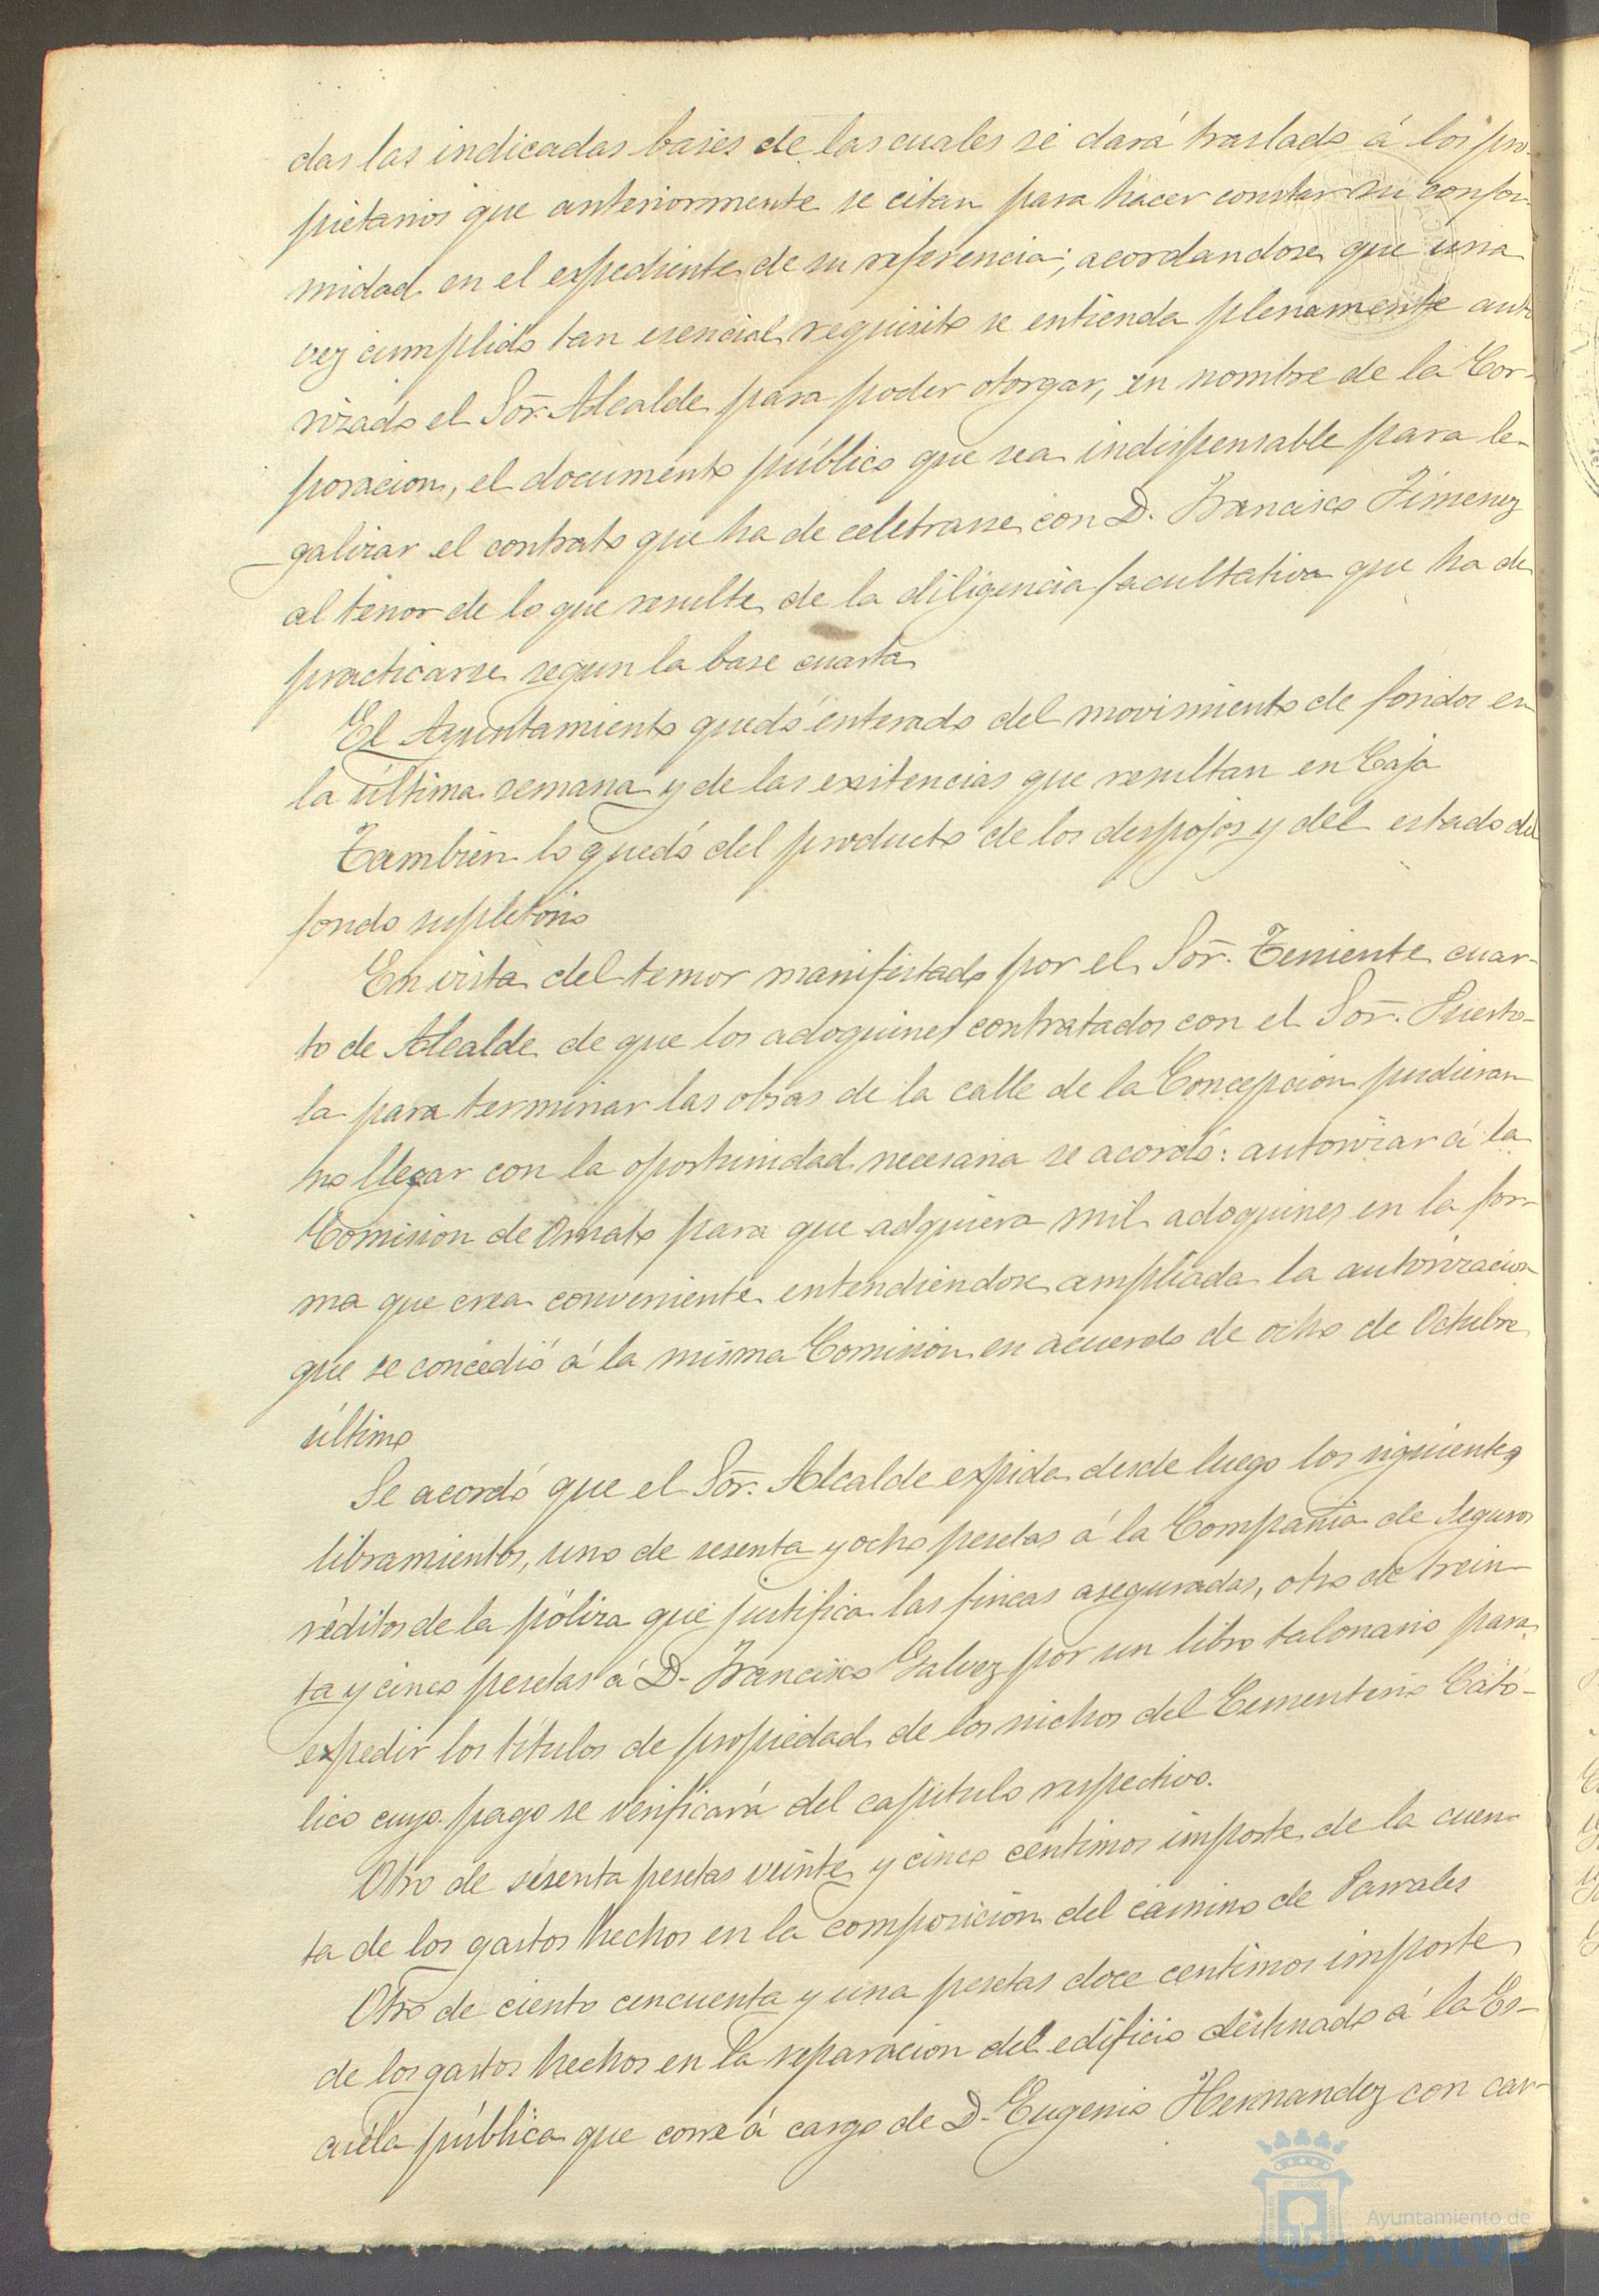 das las indicadas bases de las cuales se dará traslado á los pro-
pietarios que anteriormente se citan para hacer constar su confor-
midad en el expediente de su referencia; acordandose que una
vez cumplido tan esencial requisito se entienda plenamente auto
rizado el Sor. Alcalde para poder otorgar, en nombre de la Cor-
poracion, el documento público que sea indispensable para le-
galizar el contrato que ha de celebrarse con D. Francisco Jimenez
al tenor de lo que resulte de la diligencia facultativa que ha de
practicarse segun la base cuarta
El Ayuntamiento quedó enterado del movimiento de fondos en
la última semana y de las existencias que resultan en Caja
Tambien lo quedó del producto de los despojos y del estado del
fondo supletorio
En vista del temor manifestado por el Sor. Teniente cuar-
to de Alcalde de que los adoquines contratados con el Sor. Puerto-
la para terminar las obras de la calle de la Concepcion pudieran
no llegar con la oportunidad necesaria se acordó: autorizar á la
Comision de Ornato para que adquiera mil adoquines en la for-
ma que crea conveniente entendiendose ampliada la autorizacion
que se concedió á la misma Comision en acuerdo de ocho de Octubre
último
Se acordó que el Sor. Alcalde expida desde luego los siguientes
libramientos, uno de sesenta y ocho pesetas á la Compañia de Seguros
réditos de la póliza que justifica las fincas aseguradas, otro de trein-
ta y cinco pesetas á D. Francisco Galvez por un libro talonario para
expedir los títulos de propiedad de los nichos del Cementerio Cató-
lico cuyo pago se verificará del capítulo respectivo.
Otro de sesenta pesetas veinte y cinco centimos importe de la cuen-
ta de los gastos hechos en la composicion del camino de Parrales
Otro de ciento cincuenta y una pesetas doce centimos importe
de los gastos hechos en la reparacion del edificio destinado á la Es-
cuela pública que corre á cargo de D. Eugenio Hernandez con car-
Ayuntamiento de
HUELVA